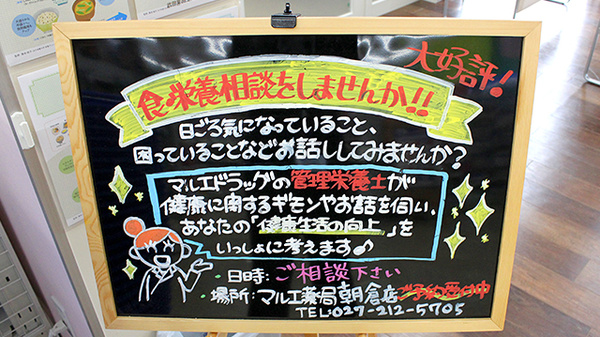 大好評!
食・栄養相談をしませんか!!
日ごろ気になっていること、
困っていることなどお話ししてみませんか?
マルエドラッグの管理栄養士が
健康に関するギモンやお話を伺い、
あなたの「健康生活の向上」を
いっしょに考えます♪
・日時:ご相談下さい
・場所:マルエ薬局朝倉店ご予約受付中
TEL:027-212-5705